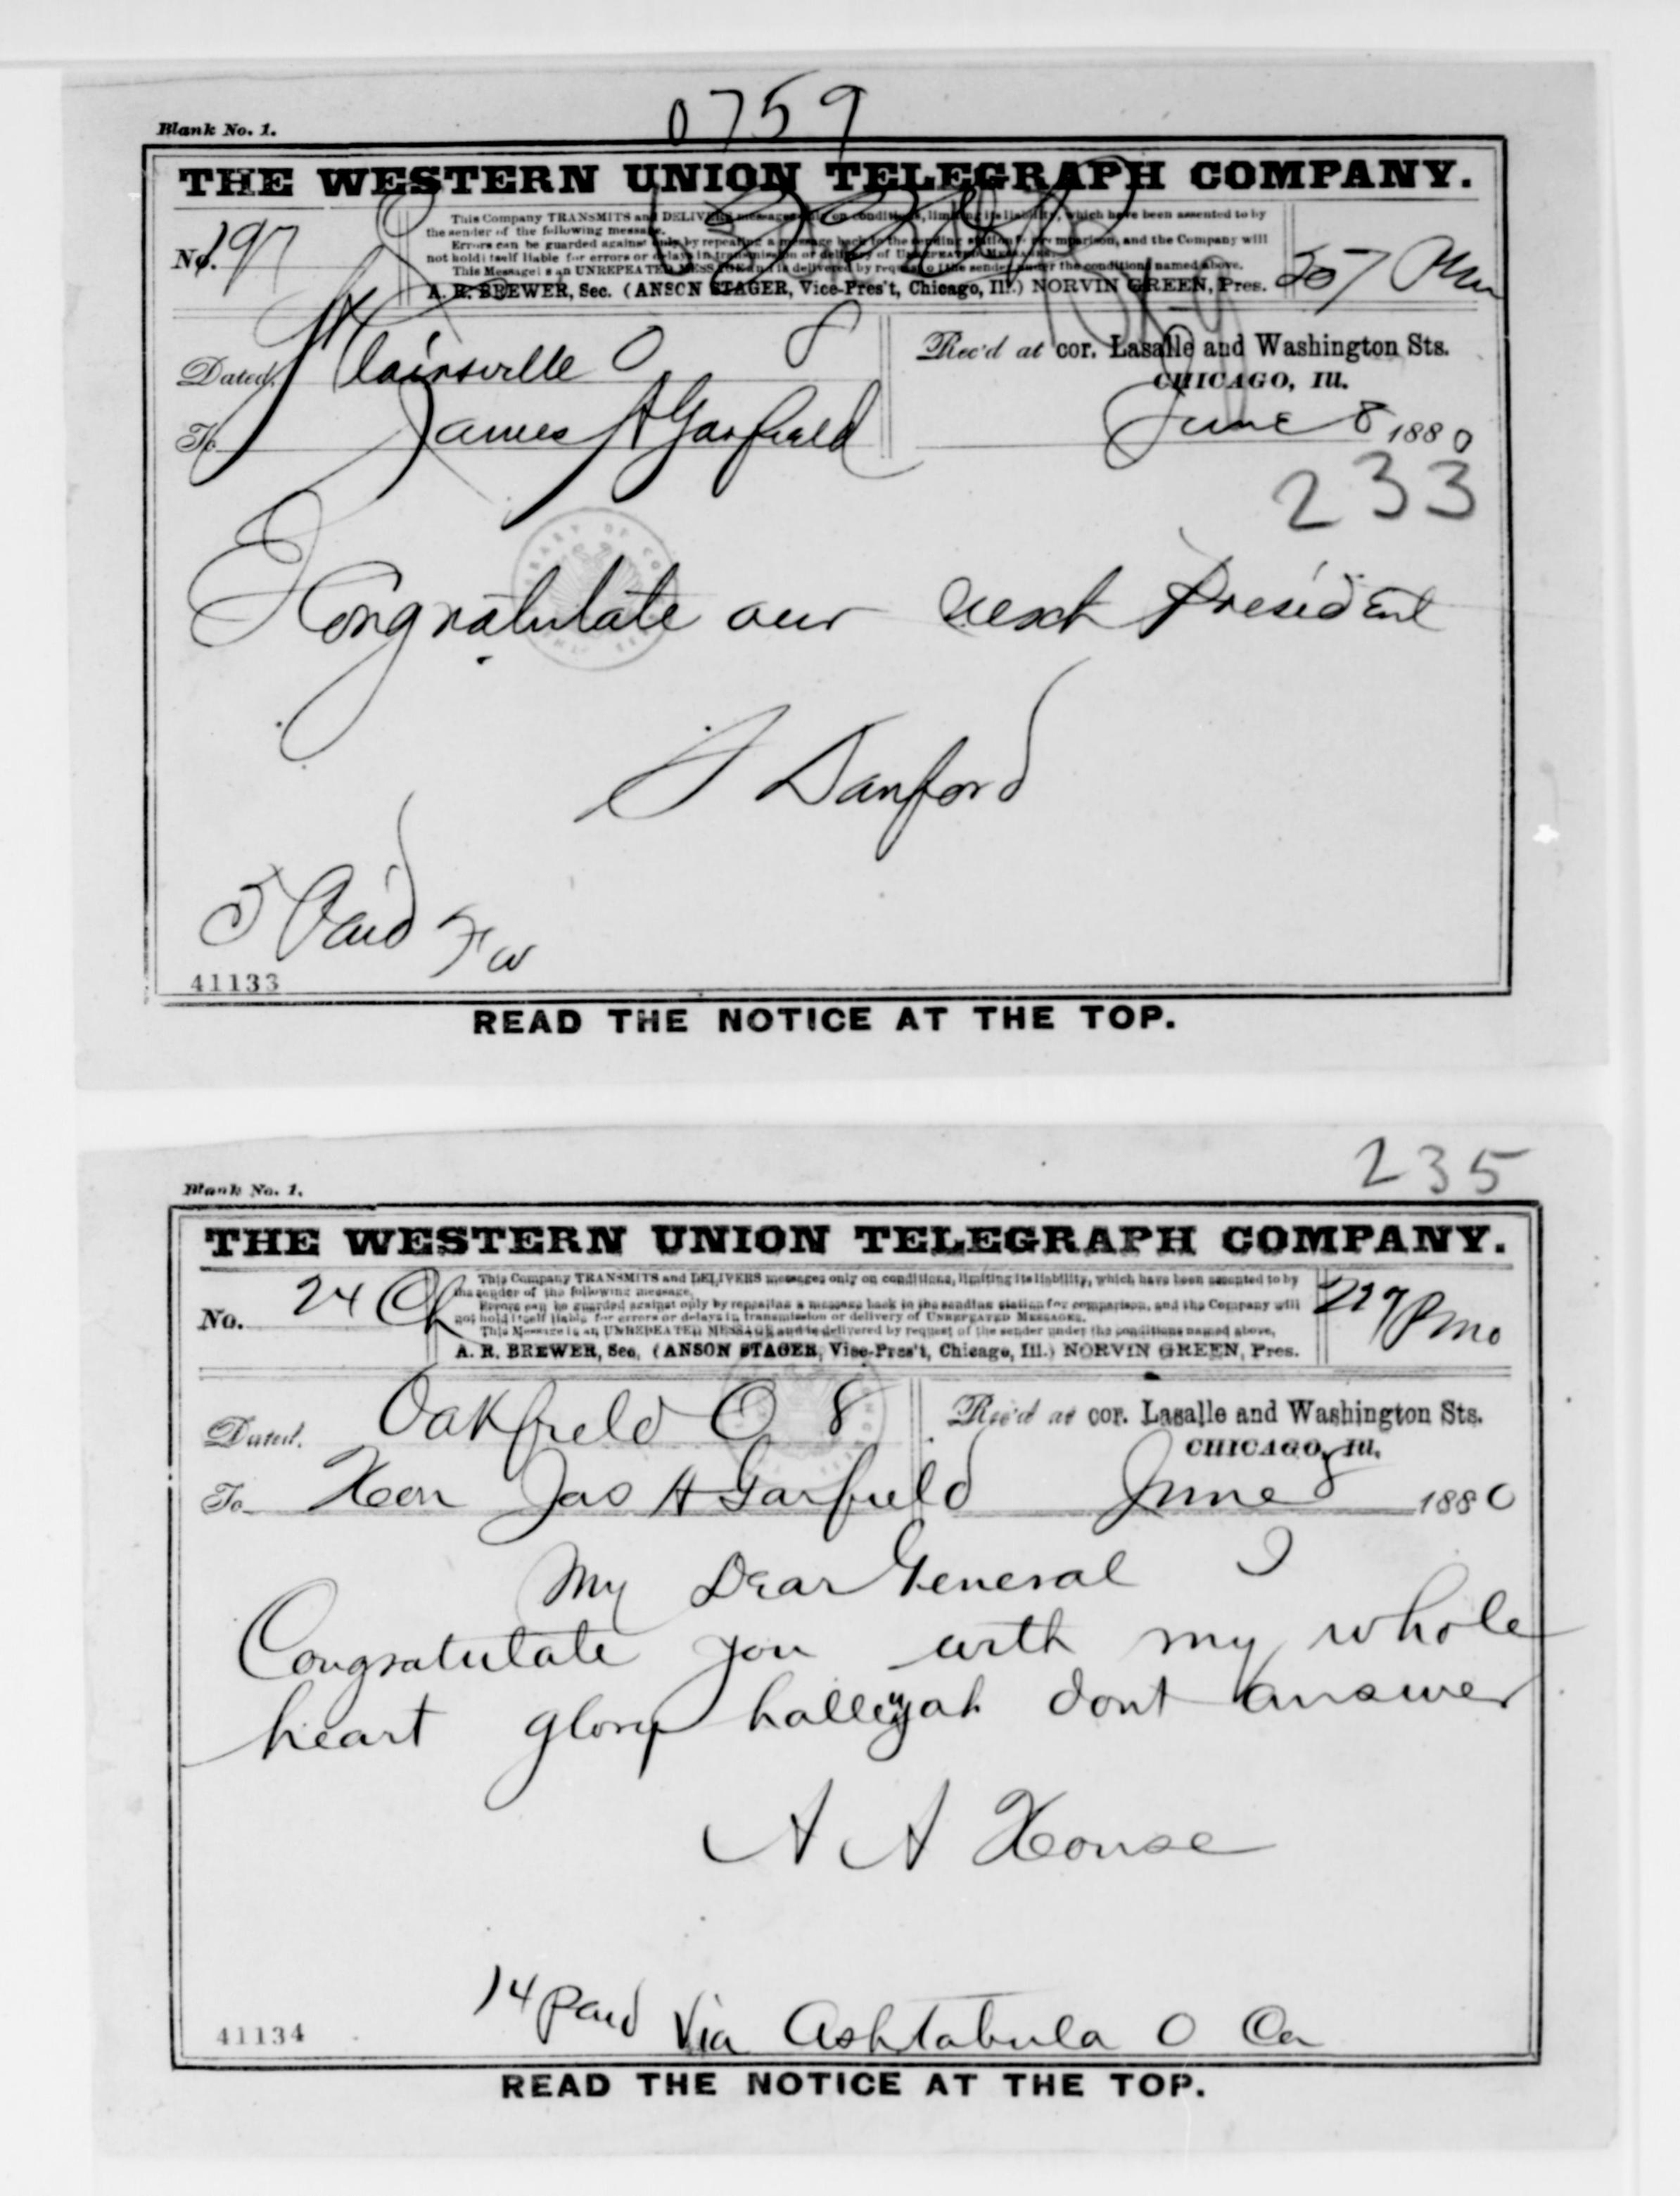 0759
Blank No. 1.
THE WESTERN UNION TELEGRAPH COMPANY.
No. 197
This Company TRANSMITS and DELIVERS messages only on conditions, limiting its liability, which have been assented to by
the sender of the following message.
Errors can be guarded against only by repeating a message back to the sending station for comparison, and the Company will
not hold itself liable for errors or delays in transmission or delivery of UNREPEATED MESSAGES.
This Message is an UNREPEATED MESSAGE and is delivered by request of the sender under the conditions named above.
A. R. BREWER, Sec. (ANSON STAGER, Vice-Pres't, Chicago, Ill.) NORVIN GREEN, Pres.
Dated, St Clairsville O 8
Rec'd at cor. Lasalle and Washington Sts.
CHICAGO, Ill.
To James A Garfield
June 8 1880
233
I Congratulate our next President
Danford
5 Paid
41133
READ THE NOTICE AT THE TOP.
235
Blank No. 1.
THE WESTERN UNION TELEGRAPH COMPANY.
No. 24 Ch
This Company TRANSMITS and DELIVERS messages only on conditions, limiting its liability, which have been assented to by
the sender of the following message.
Errors can be guarded against only by repeating a message back to the sending station for comparison, and the Company will
not hold itself liable for errors or delays in transmission or delivery of UNREPEATED MESSAGES.
This Message is an UNREPEATED MESSAGE and is delivered by request of the sender under the conditions named above,
A. R. BREWER, Sec, (ANSON STAGER, Vice-Pres't, Chicago, Ill.) NORVIN GREEN, Pres.
Dated. Oakfield O 8
Rec'd at cor. Lasalle and Washington Sts.
CHICAGO, Ill.
To Hon Jas A Garfield
June 8 1880
My Dear General I
Congratulate you with my whole
heart glory halleujah dont answer
A A House
14 paid Via Ashtabula O
41134
READ THE NOTICE AT THE TOP.